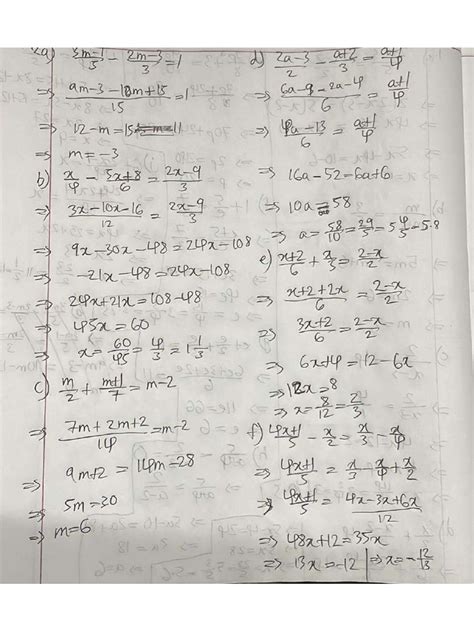 2a) 3m-1/5 - 2m-3/3 = 1
⇒ 9m-3-10m+15/15 = 1
⇒ 12-m = 15
⇒ m = -3
b) x/4 - 5x+8/6 = 2x-9/3
⇒ 3x-10x-16/12 = 2x-9/3
⇒ 9x-30x-48 = 24x-108
⇒ -21x-48 = 24x-108
⇒ 24x+21x = 108-48
⇒ 45x = 60
⇒ x = 60/45 = 4/3 = 1 1/3
c) m/2 + m+1/7 = m-2
⇒ 7m+2m+2/14 = m-2
⇒ 9m+2 = 14m-28
⇒ 5m = 30
⇒ m = 6
d) 2a-3/2 - a+2/3 = a+1/4
⇒ 6a-9-2a-4/6 = a+1/4
⇒ 4a-13/6 = a+1/4
⇒ 16a-52-6a+6
⇒ 10a = 58
⇒ a = 58/10 = 29/5 = 5 4/5 = 5.8
e) x+2/6 + x/3 = 2-x/2
⇒ x+2+2x/6 = 2-x/2
⇒ 3x+2/6 = 2-x/2
⇒ 6x+4 = 12-6x
⇒ 12x = 8
⇒ x = 8/12 = 2/3
f) 4x+1/5 - x/2 = x/3 - x/4
⇒ 4x+1/5 = x/3 - x/4 + x/2
⇒ 4x+1/5 = 4x-3x+6x/12
⇒ 48x+12 = 35x
⇒ 13x = -12 | ⇒ x = -12/13